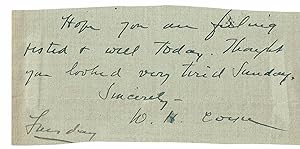 Hope you are feeling
rested & well today. Thought
you looked very tired Sunday.
Sincerely –
W. H.
Tuesday